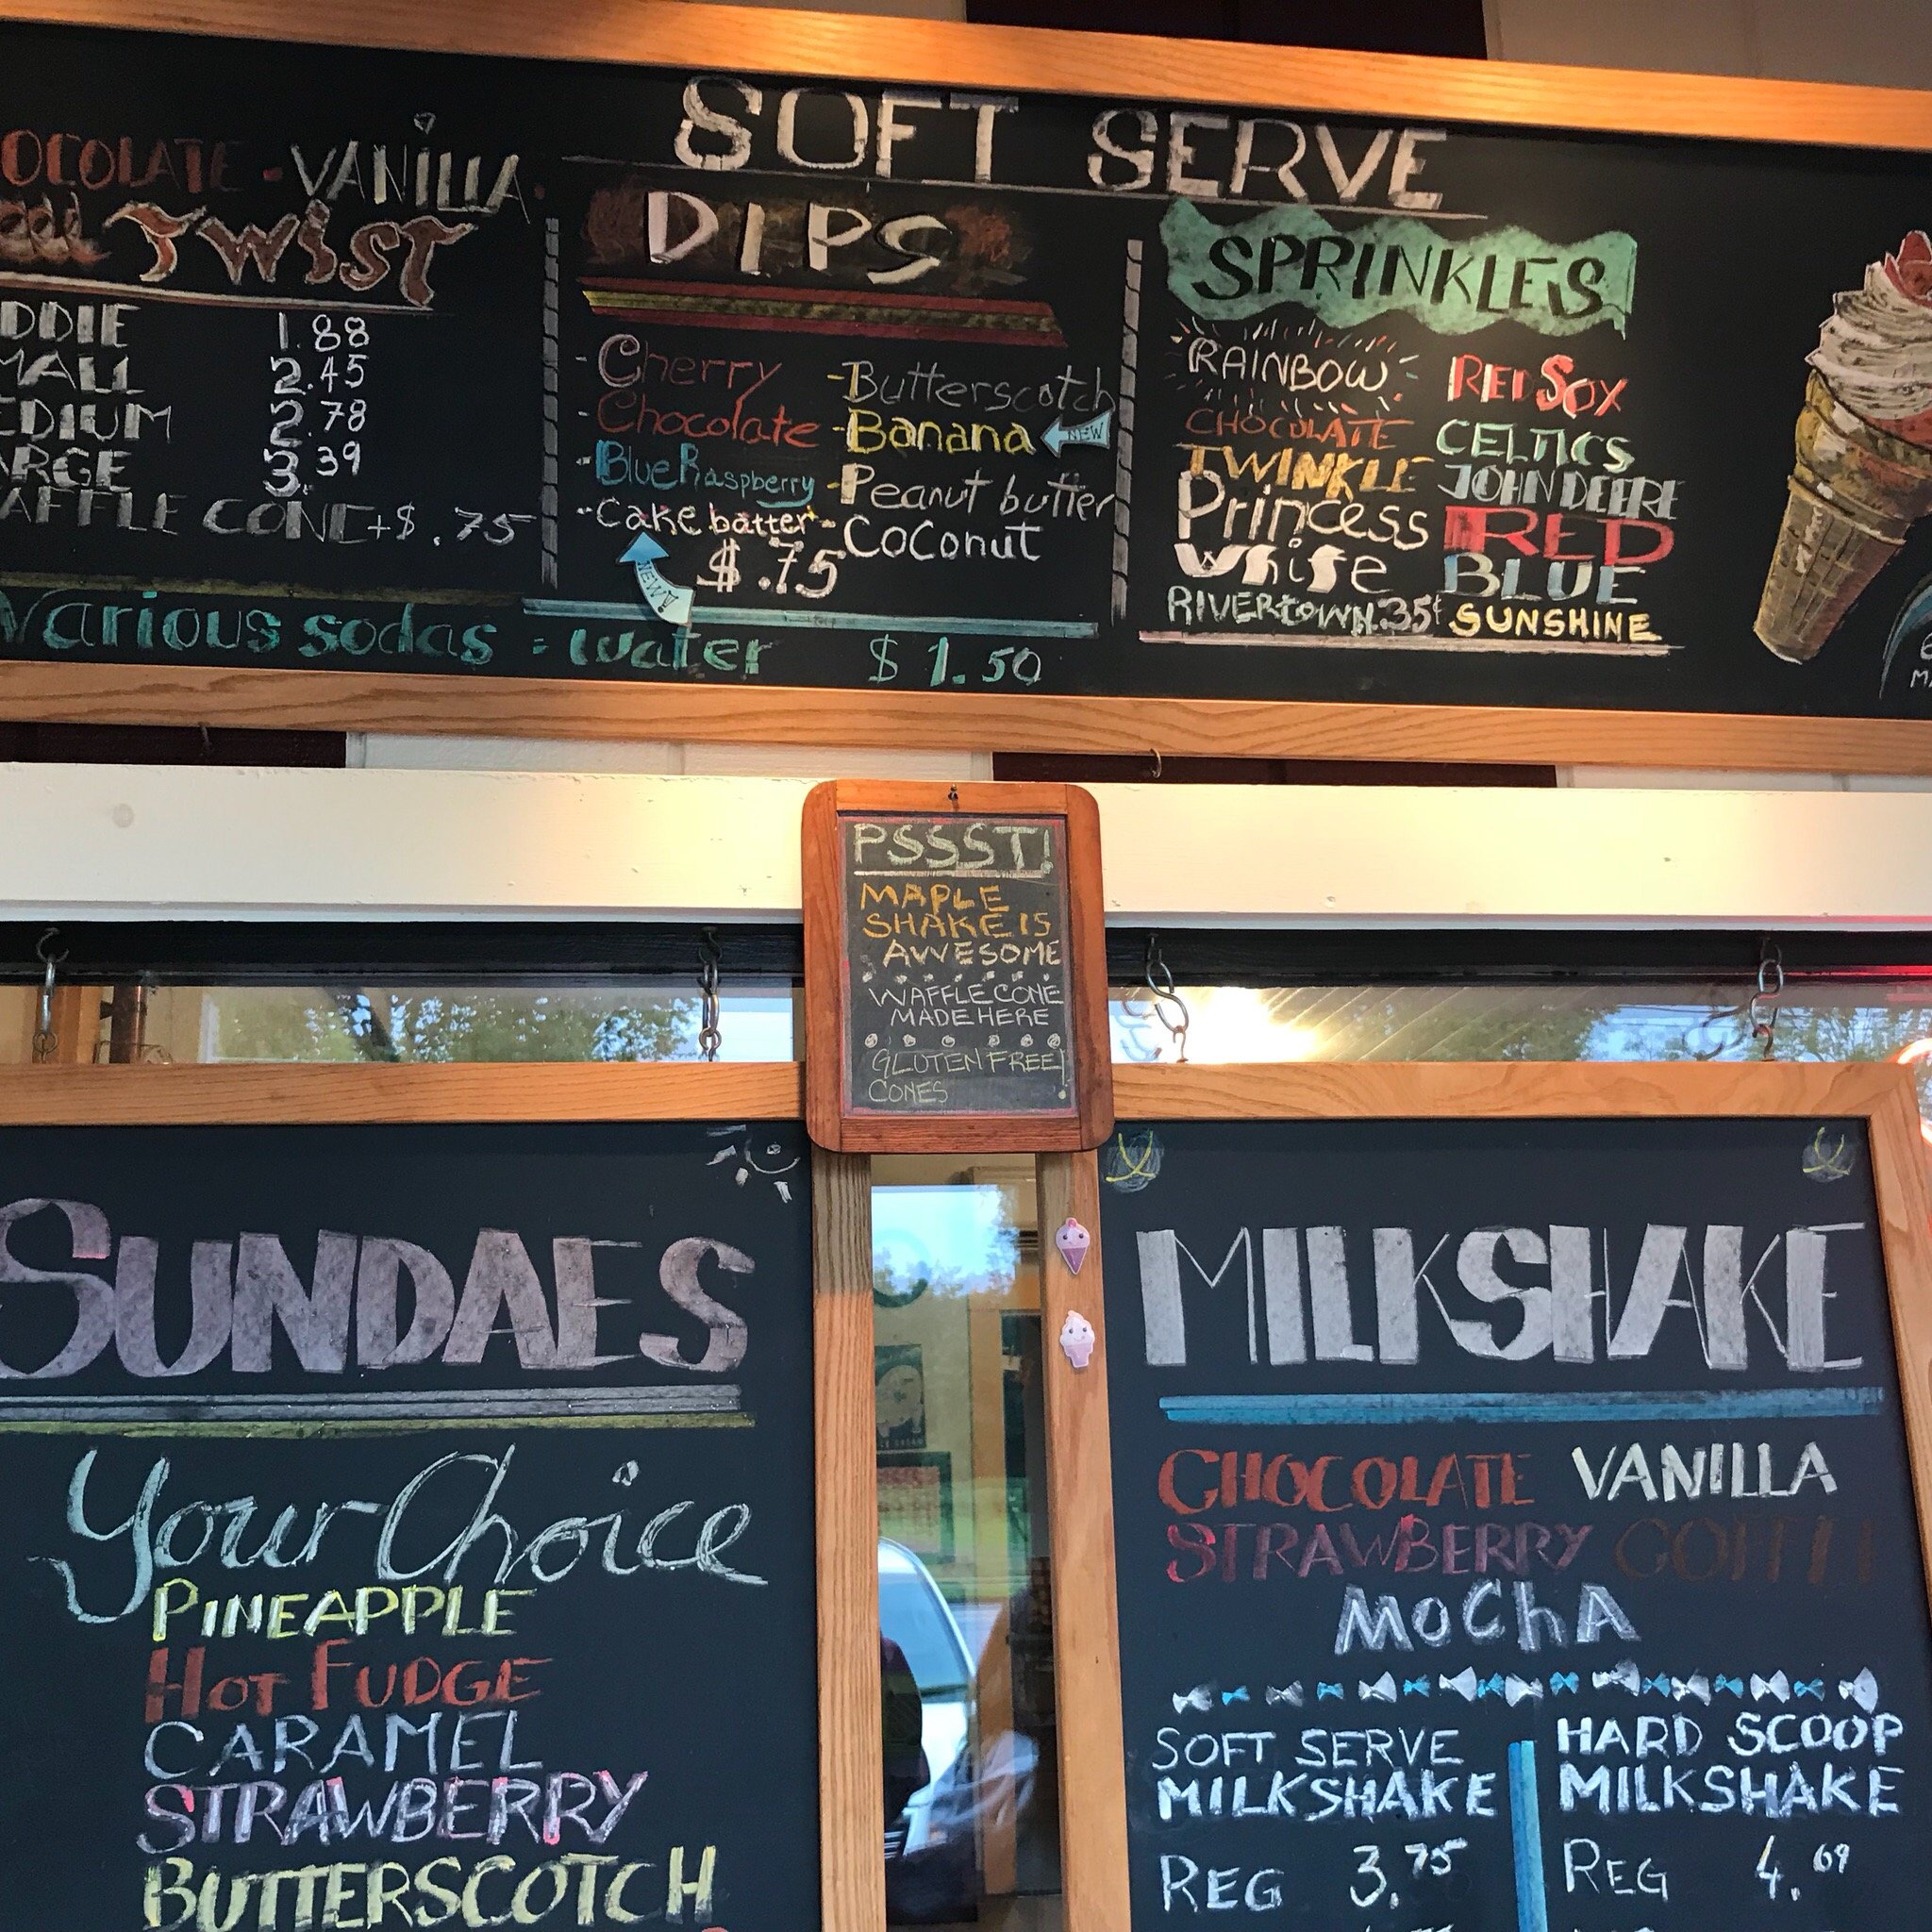 SOFT SERVE
OCOLATE - VANiLLA.
TWiST
DDIE 1.88
MALL 2.45
EDIUM 2.78
ARGE 3.39
AFFLE CONE +$.75
DIPS
- Cherry
- Chocolate
- Blue Raspberry
- Cake batter
NEW!
- Butterscotch
- Banana NEW
- Peanut butter
- Coconut
$.75
SPRINKLES
RAINBOW
CHOCOLATE
TWINKLE
Princess
White
RIVERTOWN .35¢
RED SOX
CELTICS
JOHN DEERE
RED
BLUE
SUNSHINE
Various sodas : water $1.50
PSSST!
MAPLE
SHAKE IS
AWESOME
WAFFLE CONE
MADE HERE
GLUTEN FREE!
CONES
SUNDAES
Your Choice
PINEAPPLE
HOT FUDGE
CARAMEL
STRAWBERRY
BUTTERSCOTCH
MILKSHAKE
CHOCOLATE VANILLA
STRAWBERRY
MoChA
SOFT SERVE
MILKSHAKE
REG 3.75
HARD SCOOP
MILKSHAKE
REG 4.69